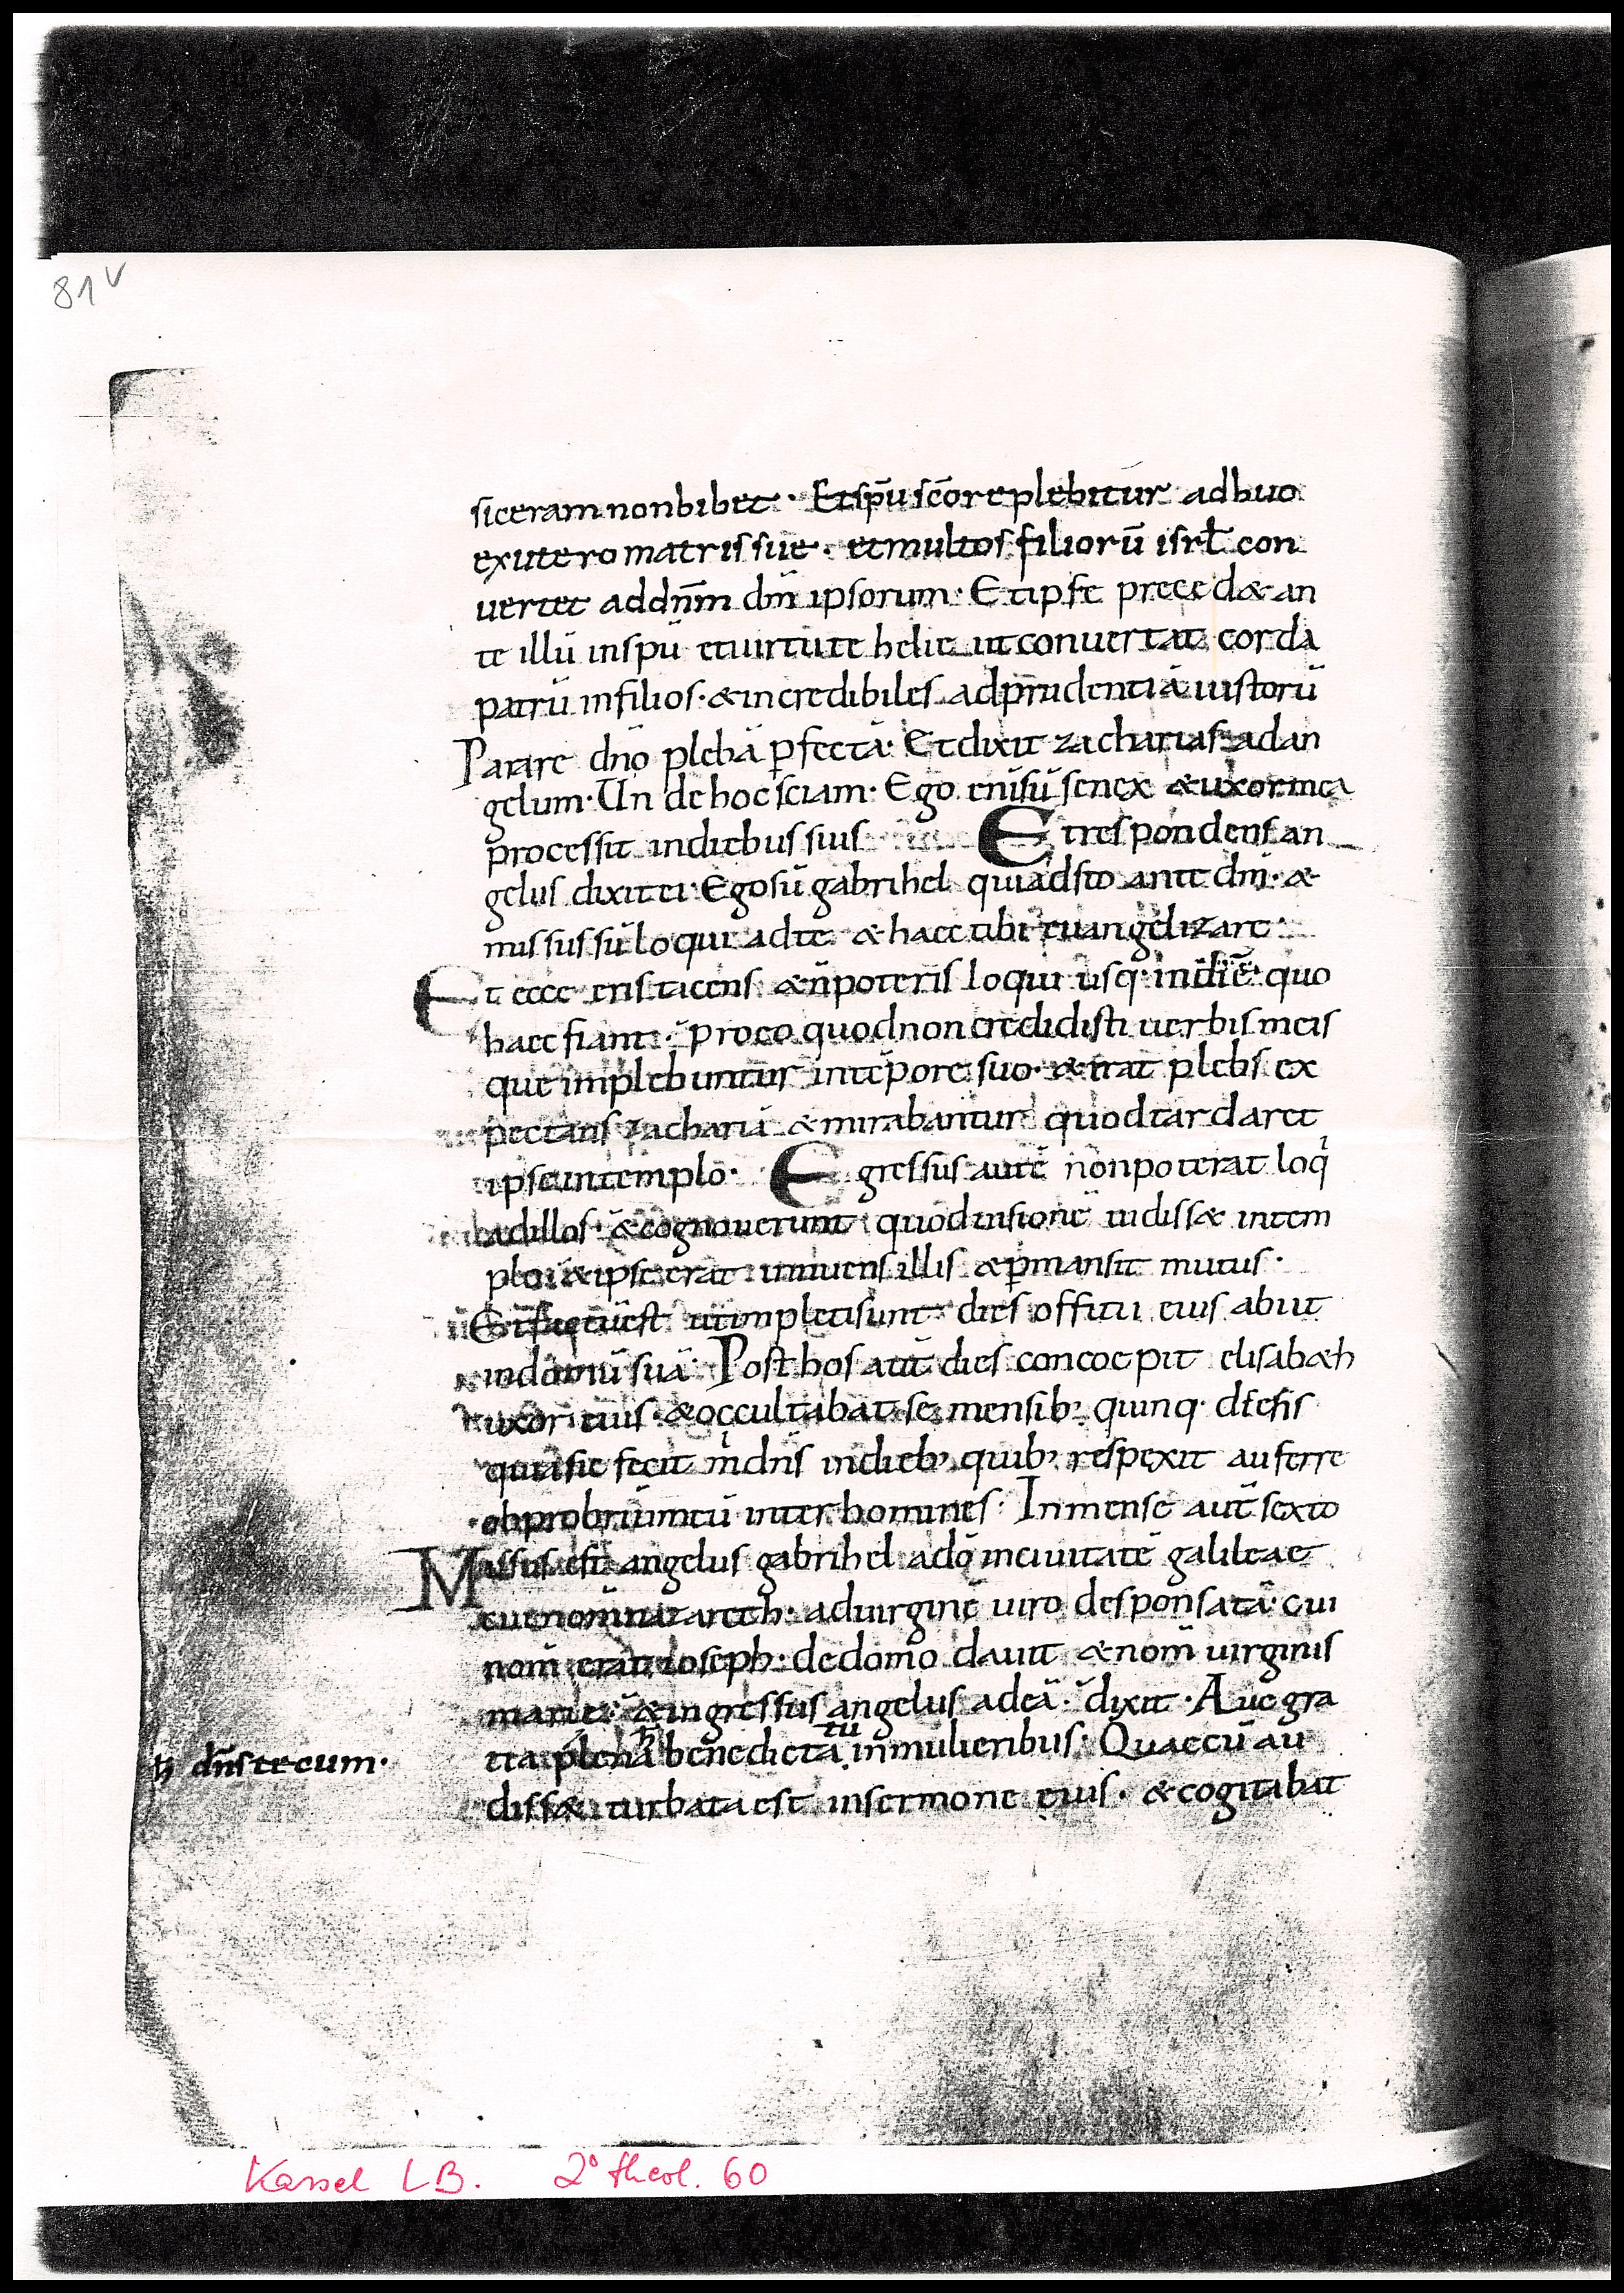 81v
siceram non bibet · Et spū scō replebitur adhuo
ex utero matris sue · et multos filiorū isrł con
uertet ad dnm̄ dm̄ ipsorum · Et ipse precedæ an
te illū in spū et uirtute helie ut conuertat corda
patrū in filios · & incredibiles ad prudentiā iustorū
Parare dnō plebā ꝑfectā · Et dixit zacharias ad an
gelum · Un de hoc sciam · Ego eni sū senex & uxor mea
processit in diebus suis Et respondens an
gelus dixit ei · Ego sū gabrihel qui adsto ante dm̄ · &
missus sū loqui ad te & haec tibi euangelizare ·
Et ecce eris tacens & n̄ poteris loqui usq· in diē quo
haec fiant · pro eo quod non credidisti uerbis meis
que implebuntur in tēpore suo · & erat plebs ex
pectans zachariā & mirabantur quod tardaret
ipse in templo · Egressus autē non poterat loq̇
ad illos · & cognouerunt quod uisionē uidissæ in tem
plo · & ipse erat innuens illis & ꝑmansit mutus ·
Et factū est ut impleti sunt dies offitii eius abiit
in domū suā · Post hos aut̄ dies concoepit elisabæh
uxor eius · & occultabat se mensib; quinq· dicens
quia sic fecit ṁ dn̄s in dieb; quib; respexit auferre
obprobriū meū inter homines · In mense aut̄ sexto
Missus est angelus gabrihel a dō in ciuitatē galileae
cui nom̄ nazareth · ad uirginē uiro desponsatā · cui
nom̄ erat ioseph · de domo dauit & nom̄ uirginis
marie · & ingressus angelus ad eā · dixit · Aue gra
tia plena ħ benedicta tu in mulieribus · Quae cū au
ꝧ dn̄s tecum ·
dissæ turbata est in sermone eius · & cogitabat
Kassel LB. 2° theol. 60